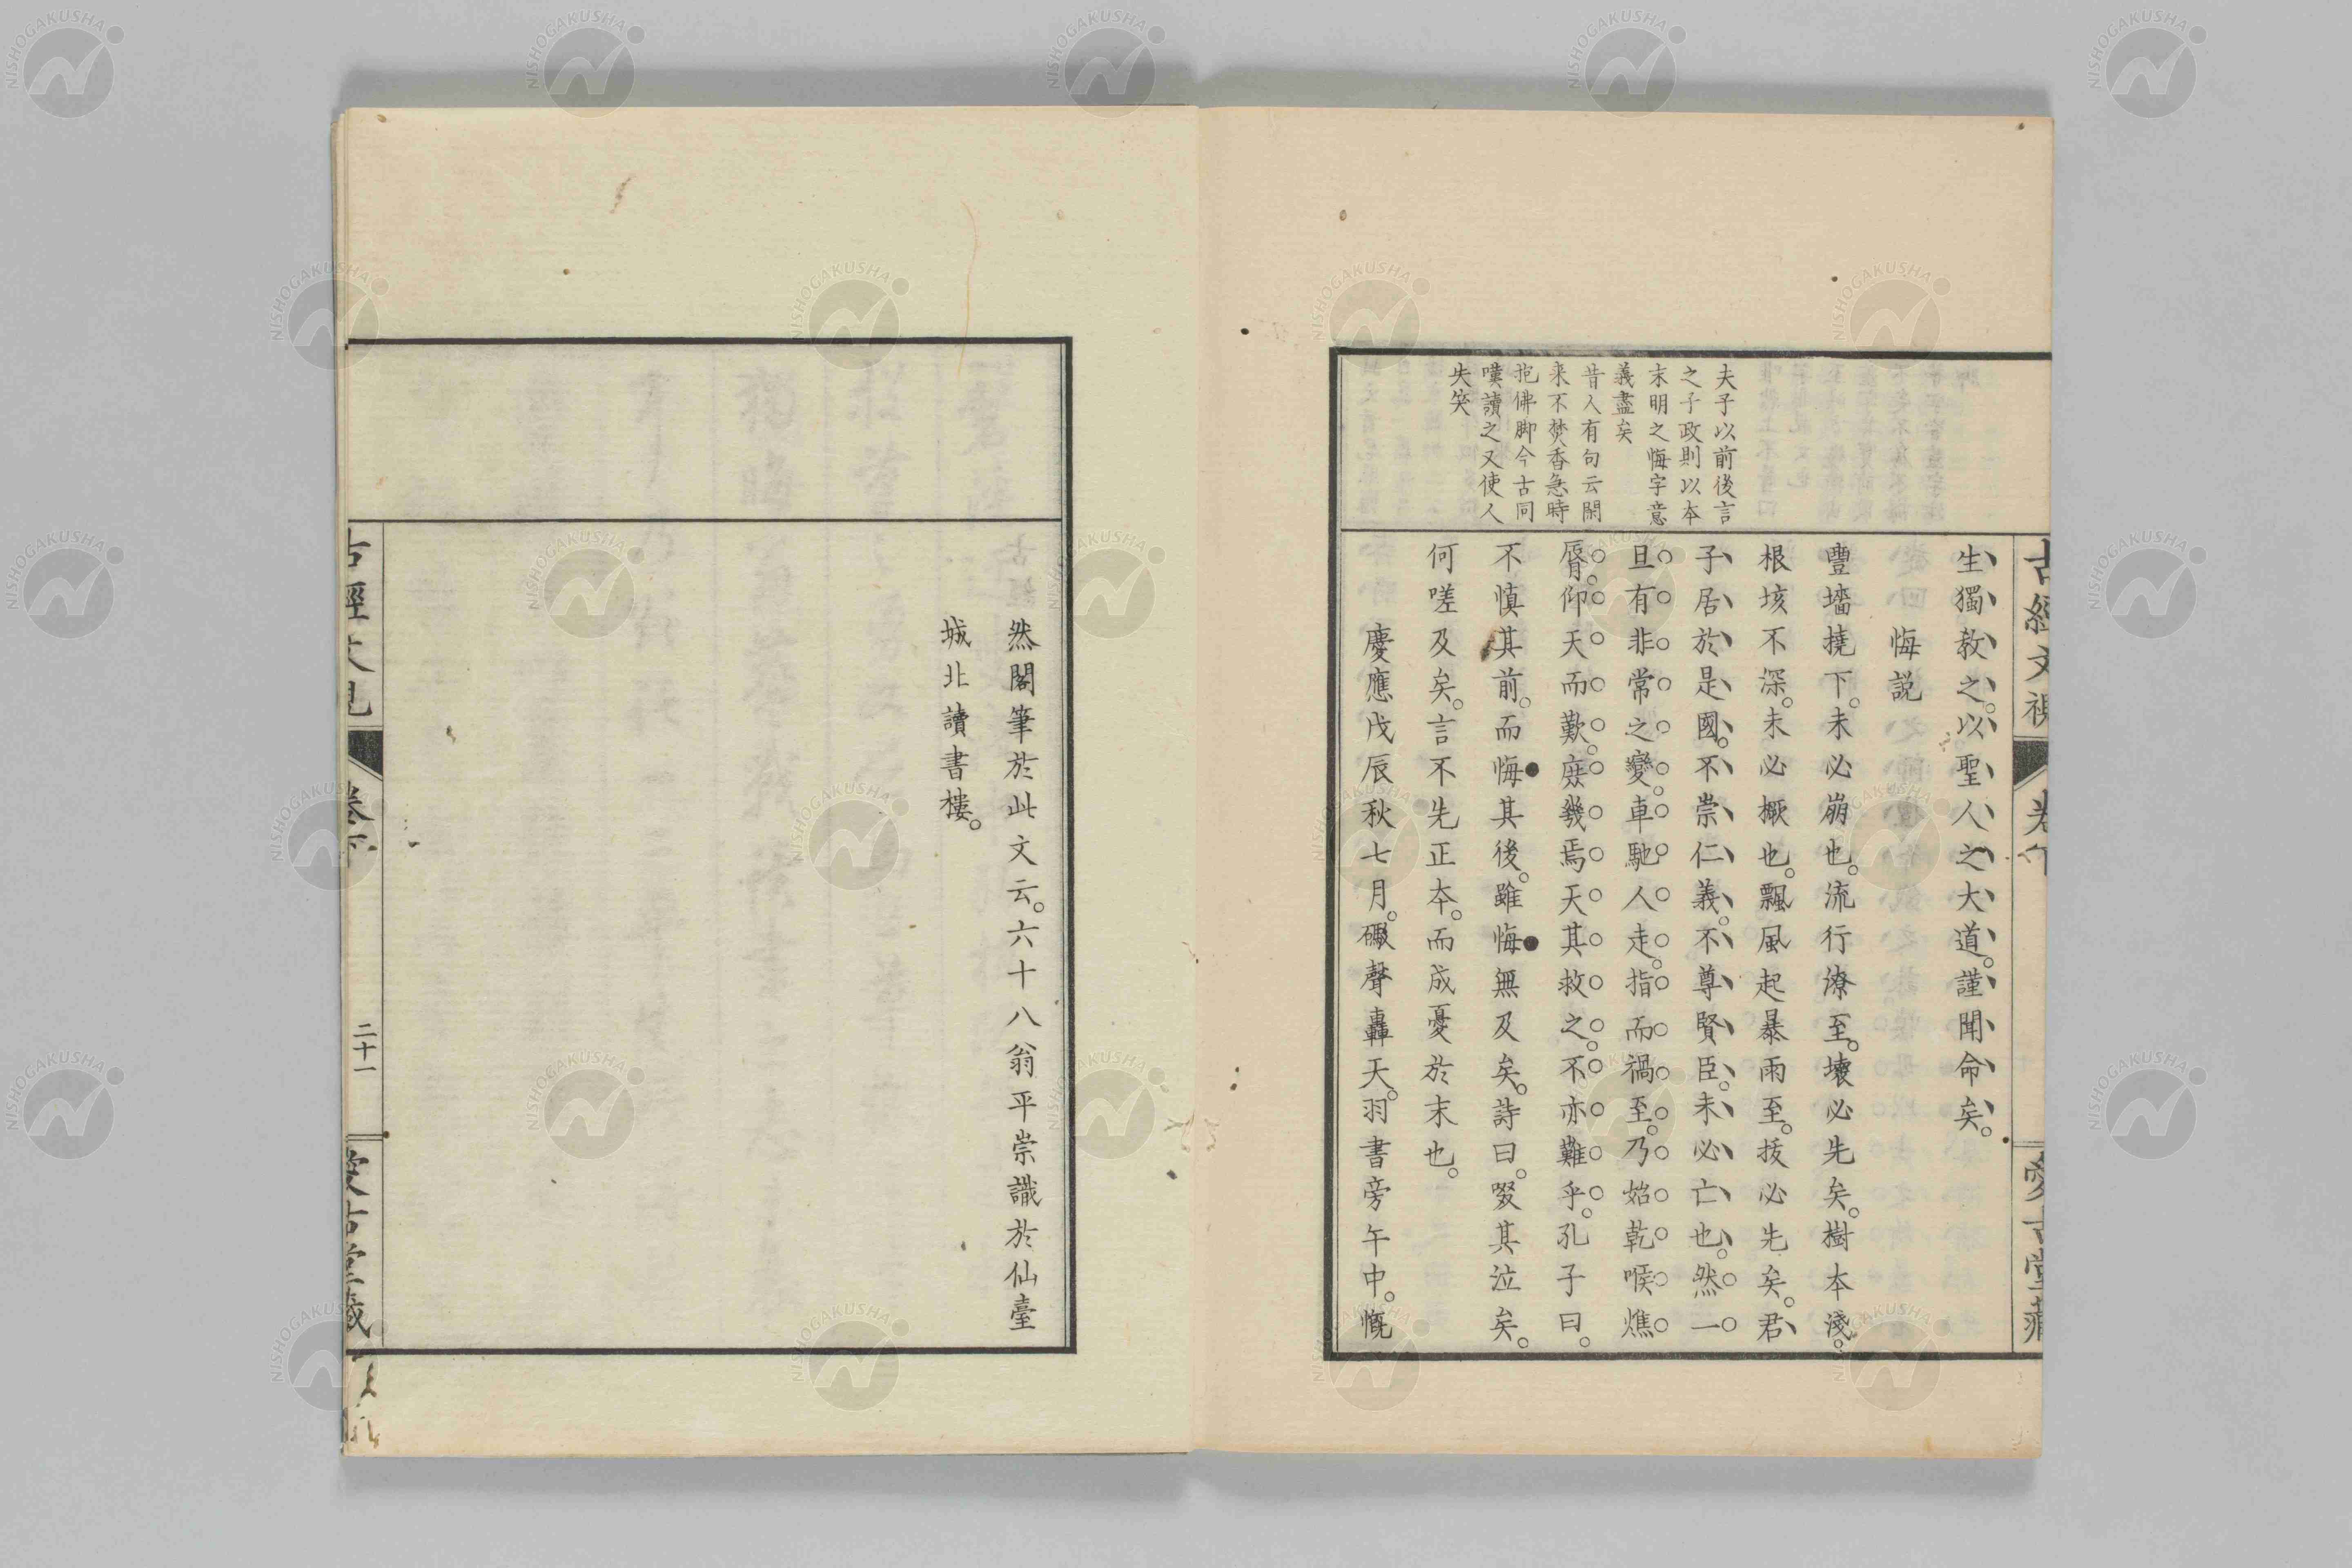 古經文視
卷下
愛古堂藏
夫子以前後言
之子政則以本
末明之悔字意
義盡矣
昔人有句云閑
来不焚香急時
抱佛脚今古同
嘆讀之又使人
失笑
生獨敎之。以聖人之大道。謹聞命矣。
悔説
豐墻撓下。未必崩也。流行潦至。壊必先矣。樹本淺。
根垓不深。未必橛也。飄風起暴雨至。拔必先矣。君
子居於是國。不崇仁義。不尊賢臣。未必亡也。然一
旦有非常之變。車馳人走。指而禍至。乃始乾喉燋
脣。仰天而歎。庶幾焉天其救之。不亦難乎。孔子曰。
不慎其前。而悔其後。雖悔無及矣。詩曰。啜其泣矣。
何嗟及矣。言不先正本。而成憂於末也。
慶應戊辰秋七月。礮聲轟天。羽書旁午中。慨
然閣筆於此文云。六十八翁平崇識於仙臺
城北讀書樓。
卷下
二十一
愛古堂藏
NISHOGAKUSHA